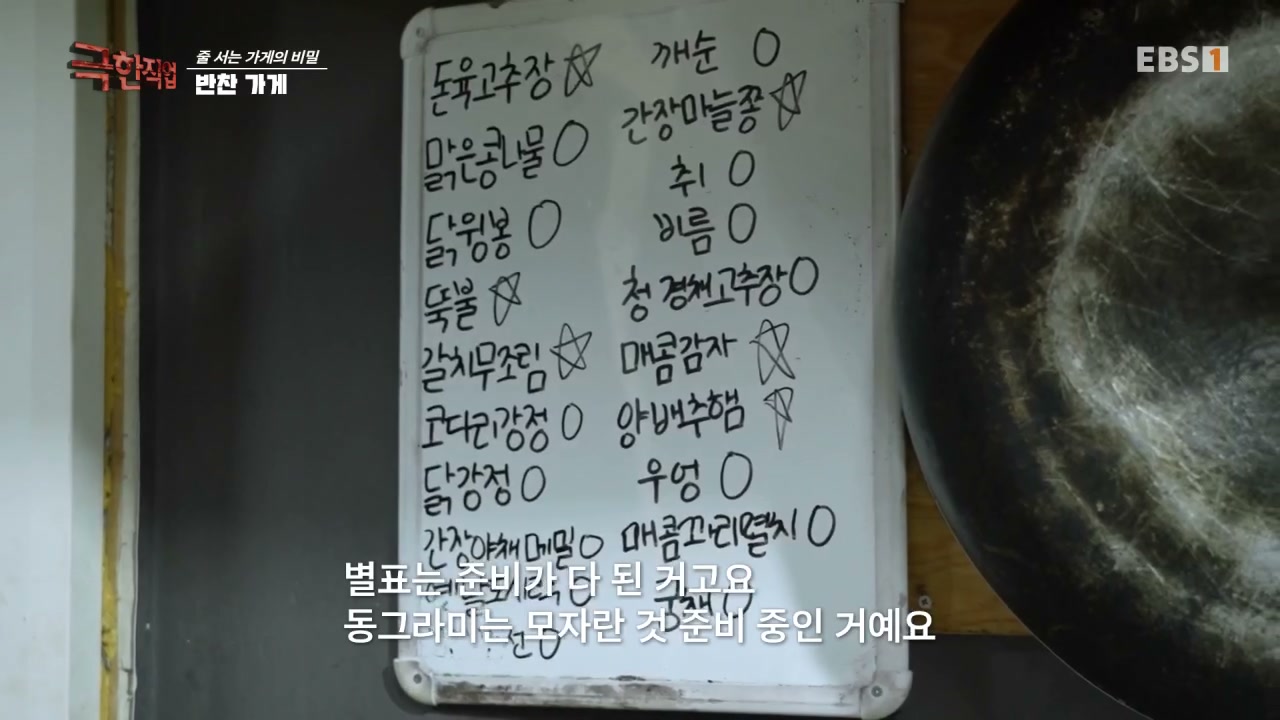 극한직업
줄 서는 가게의 비밀
반찬 가게
EBS1
돈육고추장 ☆
맑은콩나물 O
닭윙봉 O
뚝불 ☆
갈치무조림 ☆
코다리강정 O
닭강정 O
간장야채메밀 O
전 O
깨순 O
간장마늘쫑 ☆
취 O
비름 O
청경채고추장 O
매콤감자 ☆
양배추햄 ☆
우엉 O
매콤꽈리멸치 O
궁채 O
별표는 준비가 다 된 거고요
동그라미는 모자란 것 준비 중인 거예요